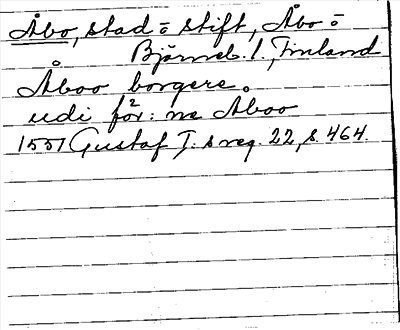 Åbo, stad o stift, Åbo o
Björneb. l., Finland
Åboo borgere.
udi för: ne Aboo
1551 Gustaf I: s reg. 22, s. 464.